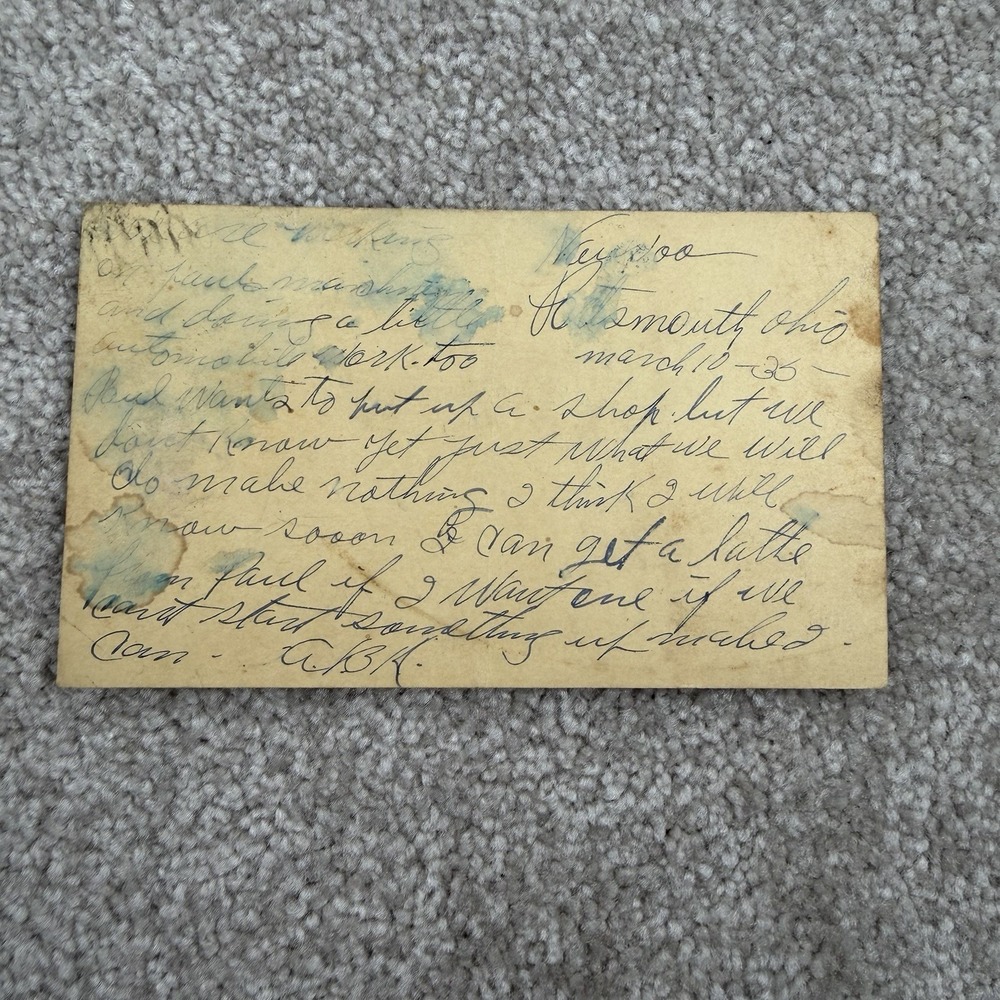 working
on pauls
and doing a little Portsmouth Ohio
automobile work too march 10 - 35 -
Paul wants to put up a shop but we
dont know yet just what we will
do make nothing I think I will
know sooon I can get a lathe
from Paul if I want one if we
cant start something up
can - A.B.K.